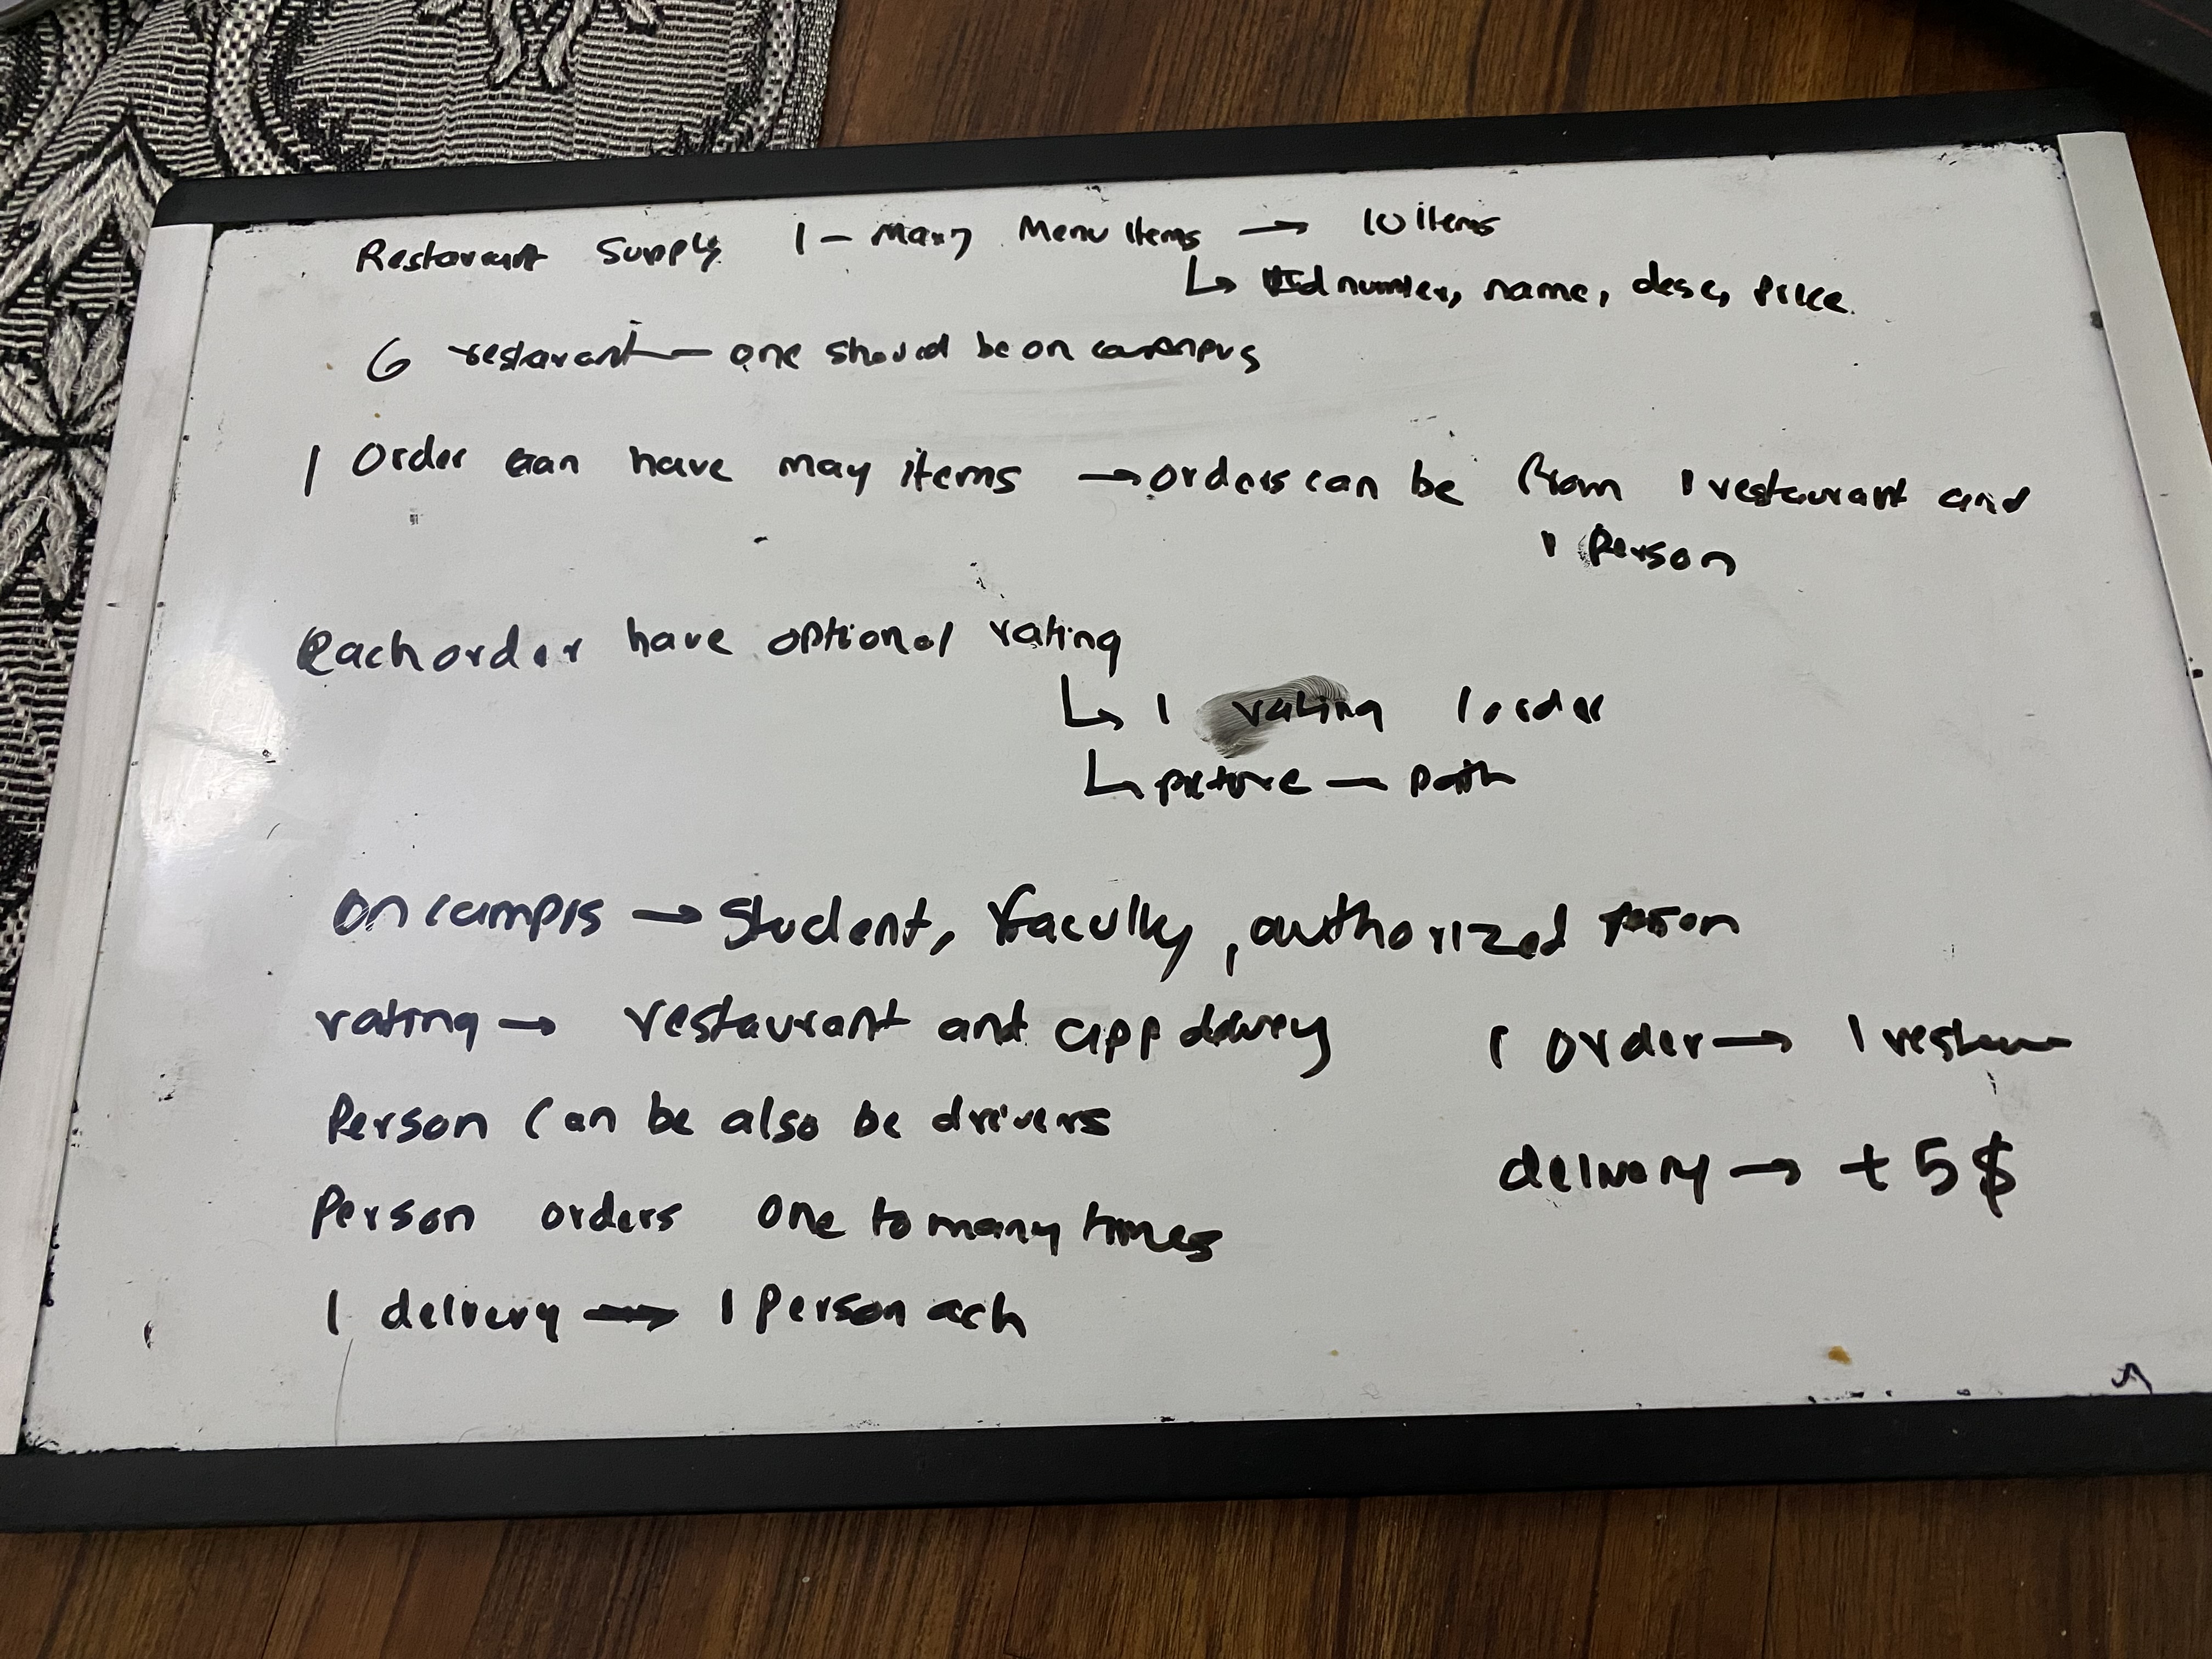 Restorant Supply 1 - Many Menu Items → 10 items
↳ Id number, name, desc, price
6 restarant — one should be on campus
1 Order can have may items → orders can be from 1 restaurant and
1 Person
Each order have optional rating
↳ 1 rating 1 order
↳ picture — path
On campus → Student, Faculty, authorized Person
rating → restaurant and app delivery
1 Order → 1 restau
Person can be also be drivers
delivery → + 5$
Person orders one to many times
1 delivery → 1 Person